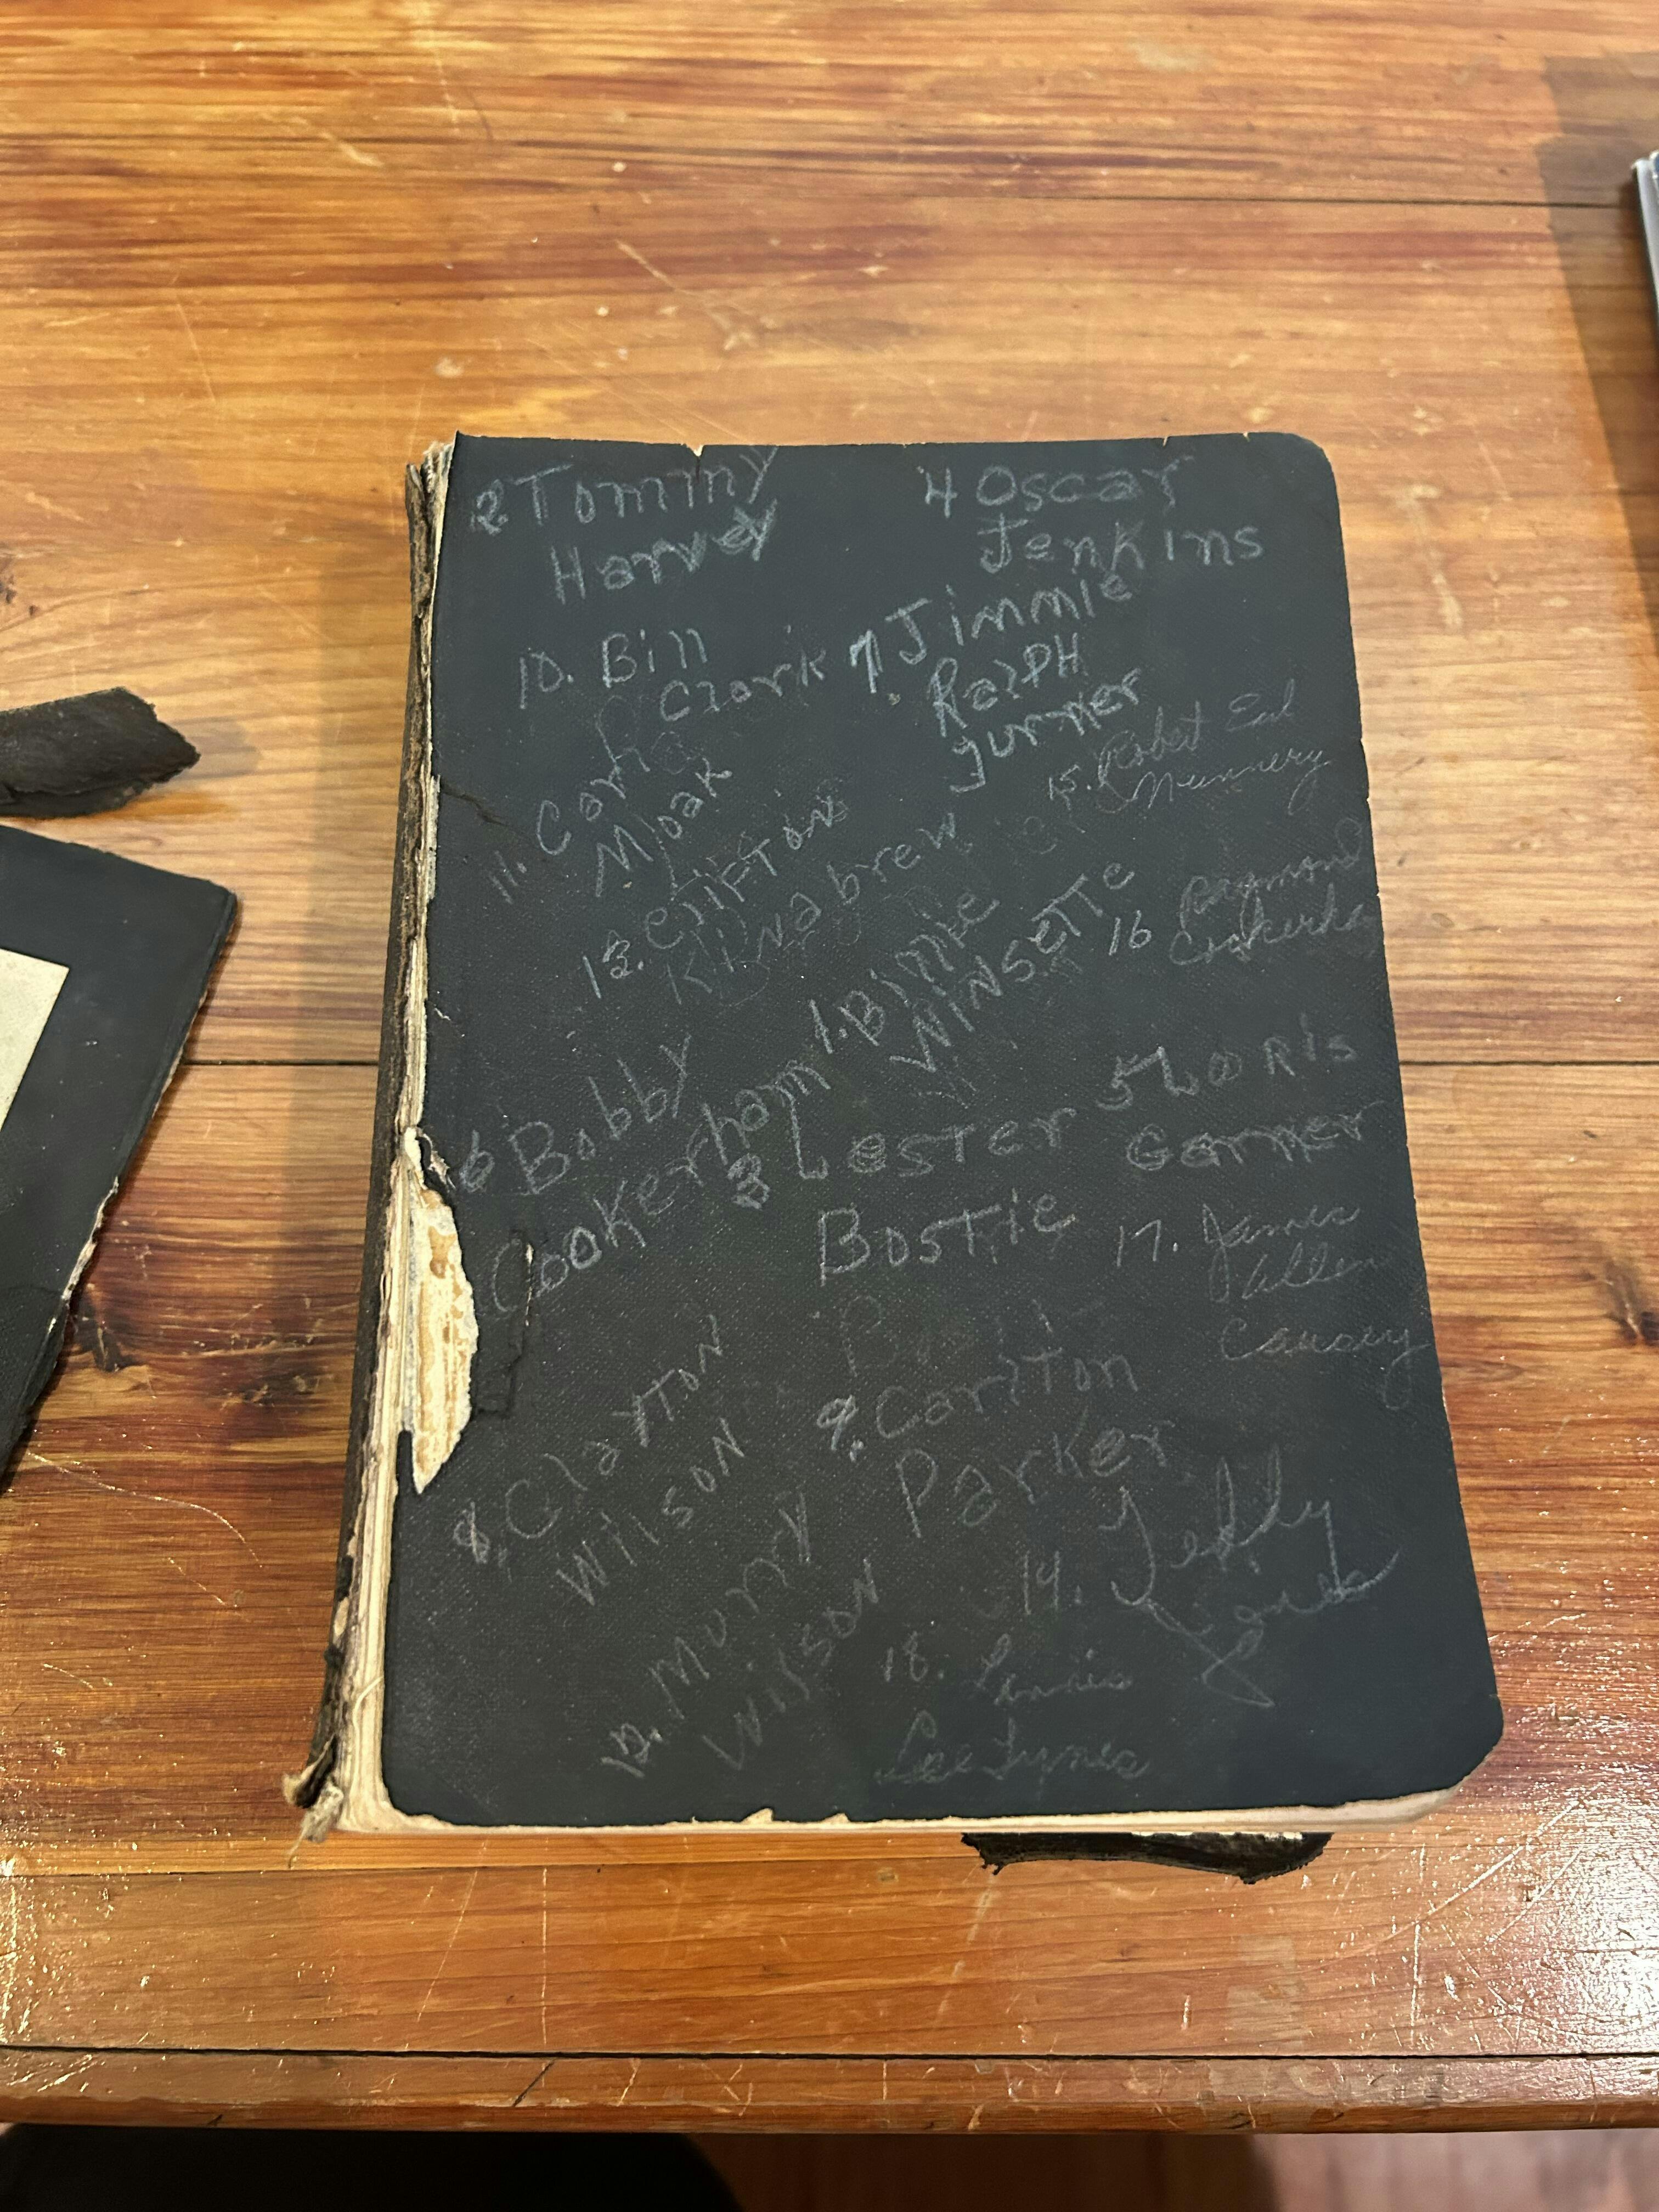 2 Tommy
Harvey
4 Oscar
Jenkins
10. Bill
Clark
7 Jimmie
Ralph
gurner
11. Carl
Moak
15. Robet Earl
Nunnery
13. Clifton
Kinabrew
16 Raymond
1. Binnie
Winsette
6 Bobby
Cookerham
3 Lester
Bostie
5 Loris
Garner
17. James
Allen
Causey
8. Clayton
Wilson
9. Carlton
Parker
12. Murry
Wilson
14. Teddy
18.
Lee Lynes